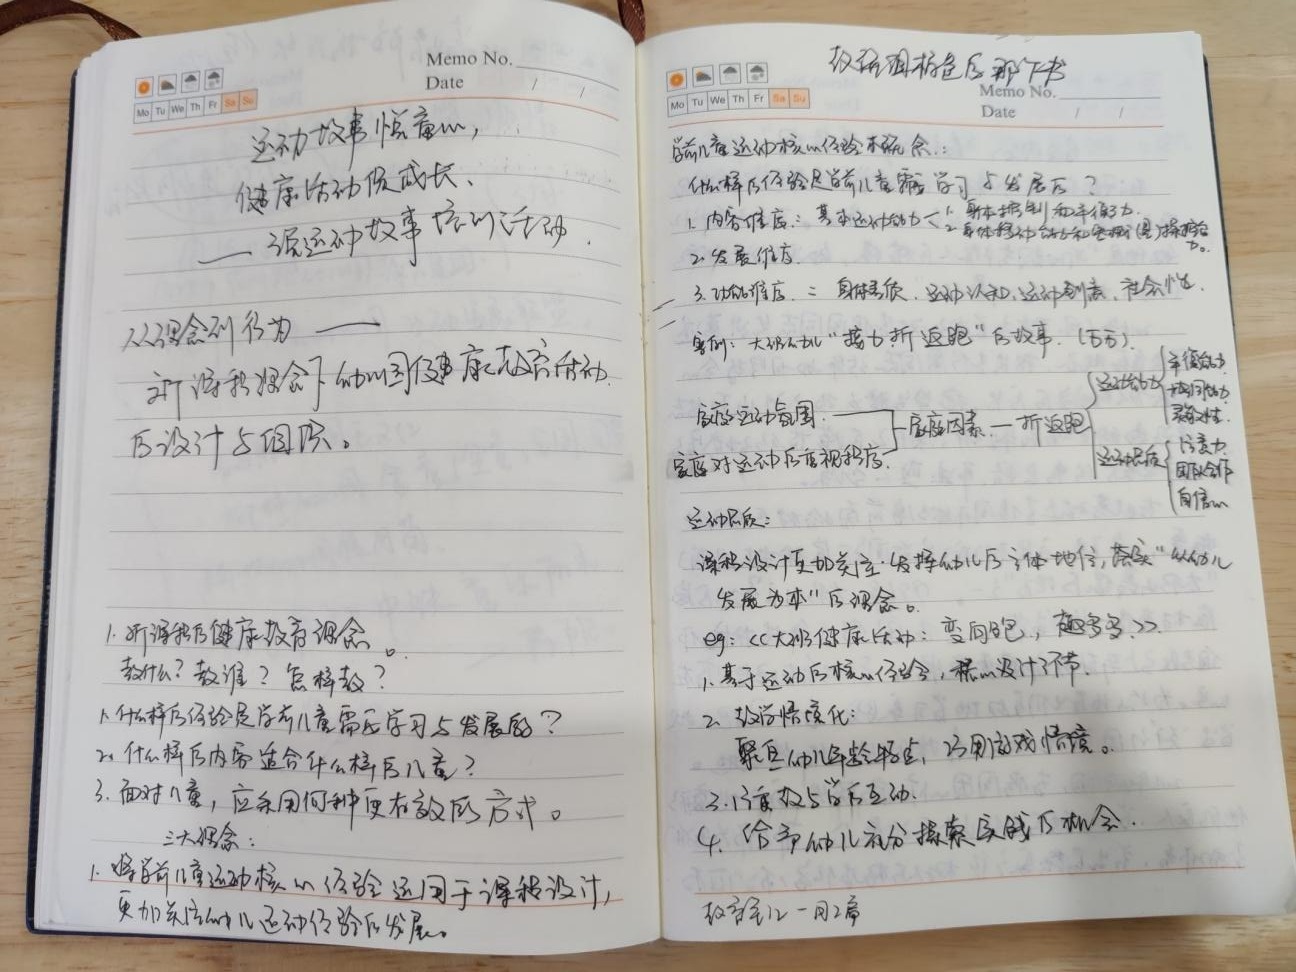 Memo No.
Date / /
Mo Tu We Th Fr Sa Su
运动故事悦童心，
健康活动促成长、
——讲运动故事培训活动.
从理念到行为——
新课程理念下幼儿园健康教育活动
的设计与组织。
1. 新课程的健康教育理念。
教什么？教谁？怎样教？
1. 什么样的经验是学前儿童需要学习与发展的？
2. 什么样的内容适合什么样的儿童？
3. 面对儿童，应采用何种更有效的方式。
三大理念：
1. 将学前儿童运动核心经验运用于课程设计，
更加关注幼儿运动经验的发展。
那个书
Memo No.
Date / /
Mo Tu We Th Fr Sa Su
学前儿童运动核心经验概念：
什么样的经验是学前儿童需要学习与发展的？
1. 内容维度：基本运动能力 1. 身体控制和平衡能力
2. 身体移动能力
2. 发展维度
3. 功能维度：身体素质、运动认知、运动创意、社会性
案例：大班幼儿“接力折返跑”的故事.（万万）.
家庭运动氛围.
家庭对运动的重视程度.
家庭因素—折返跑
运动能力 平衡能力
协同能力
灵敏性.
运动品质 注意力
团队合作
自信心
运动品质：
课程设计更加关注·发挥幼儿的主体地位，落实“以幼儿
发展为本”的理念。
eg：《大班健康活动：变向跑，趣多多》
1. 基于运动的核心经验，精心设计环节.
2. 教学情境化：
聚焦幼儿年龄特点，巧用游戏情境。
3. 注重教与学的互动.
4. 给予幼儿充分探索实践的机会.